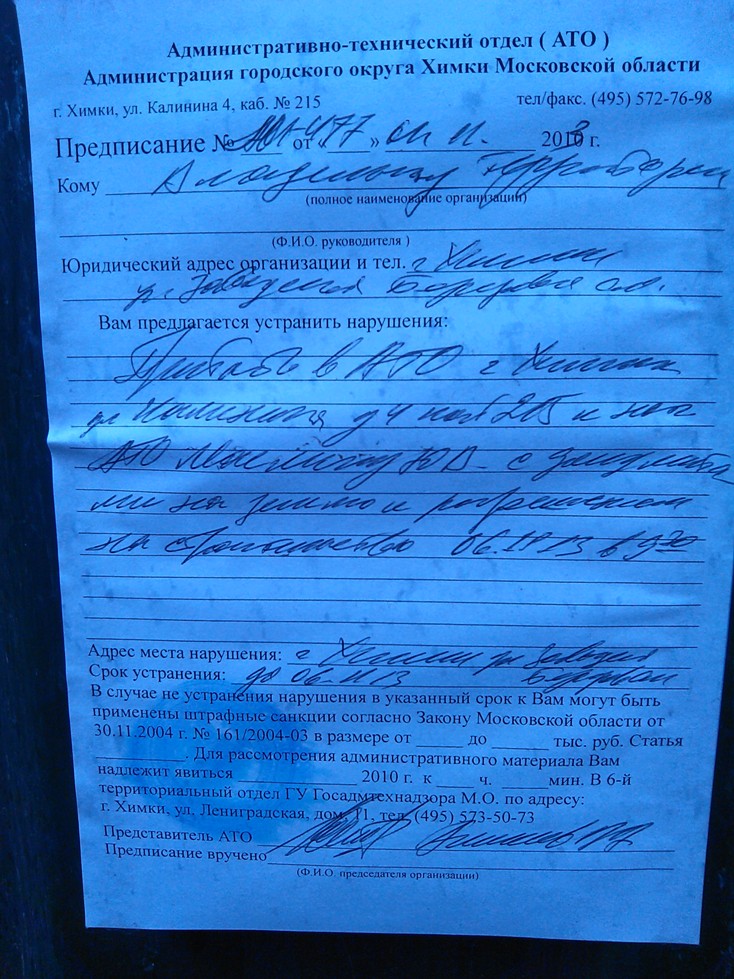 Административно-технический отдел ( АТО )
Администрация городского округа Химки Московской области
г. Химки, ул. Калинина 4, каб. № 215
тел/факс. (495) 572-76-98
Предписание № от 477 » 01.11. 2013 г.
Кому Владельцу территории
(полное наименование организации)
(Ф.И.О. руководителя )
Юридический адрес организации и тел. г Химки
ул. Заводская
Вам предлагается устранить нарушения:
Прибыть в АТО г Химки
ул Калинина д 4 каб 215 к нач
АТО Ю.В. с документа
ми на землю и разрешением
на строительство 06.11.13 в 9 30
Адрес места нарушения: г Химки ул Заводская
Срок устранения: до 06.11.13
В случае не устранения нарушения в указанный срок к Вам могут быть
применены штрафные санкции согласно Закону Московской области от
30.11.2004 г. № 161/2004-03 в размере от ______ до ______ тыс. руб. Статья
__________. Для рассмотрения административного материала Вам
надлежит явиться ______________ 2010 г. к ____ ч. ______мин. В 6-й
территориальный отдел ГУ Госадмтехнадзора М.О. по адресу:
г. Химки, ул. Лениградская, дом, 11, тел. (495) 573-50-73
Представитель АТО
Предписание вручено
(Ф.И.О. председателя организации)